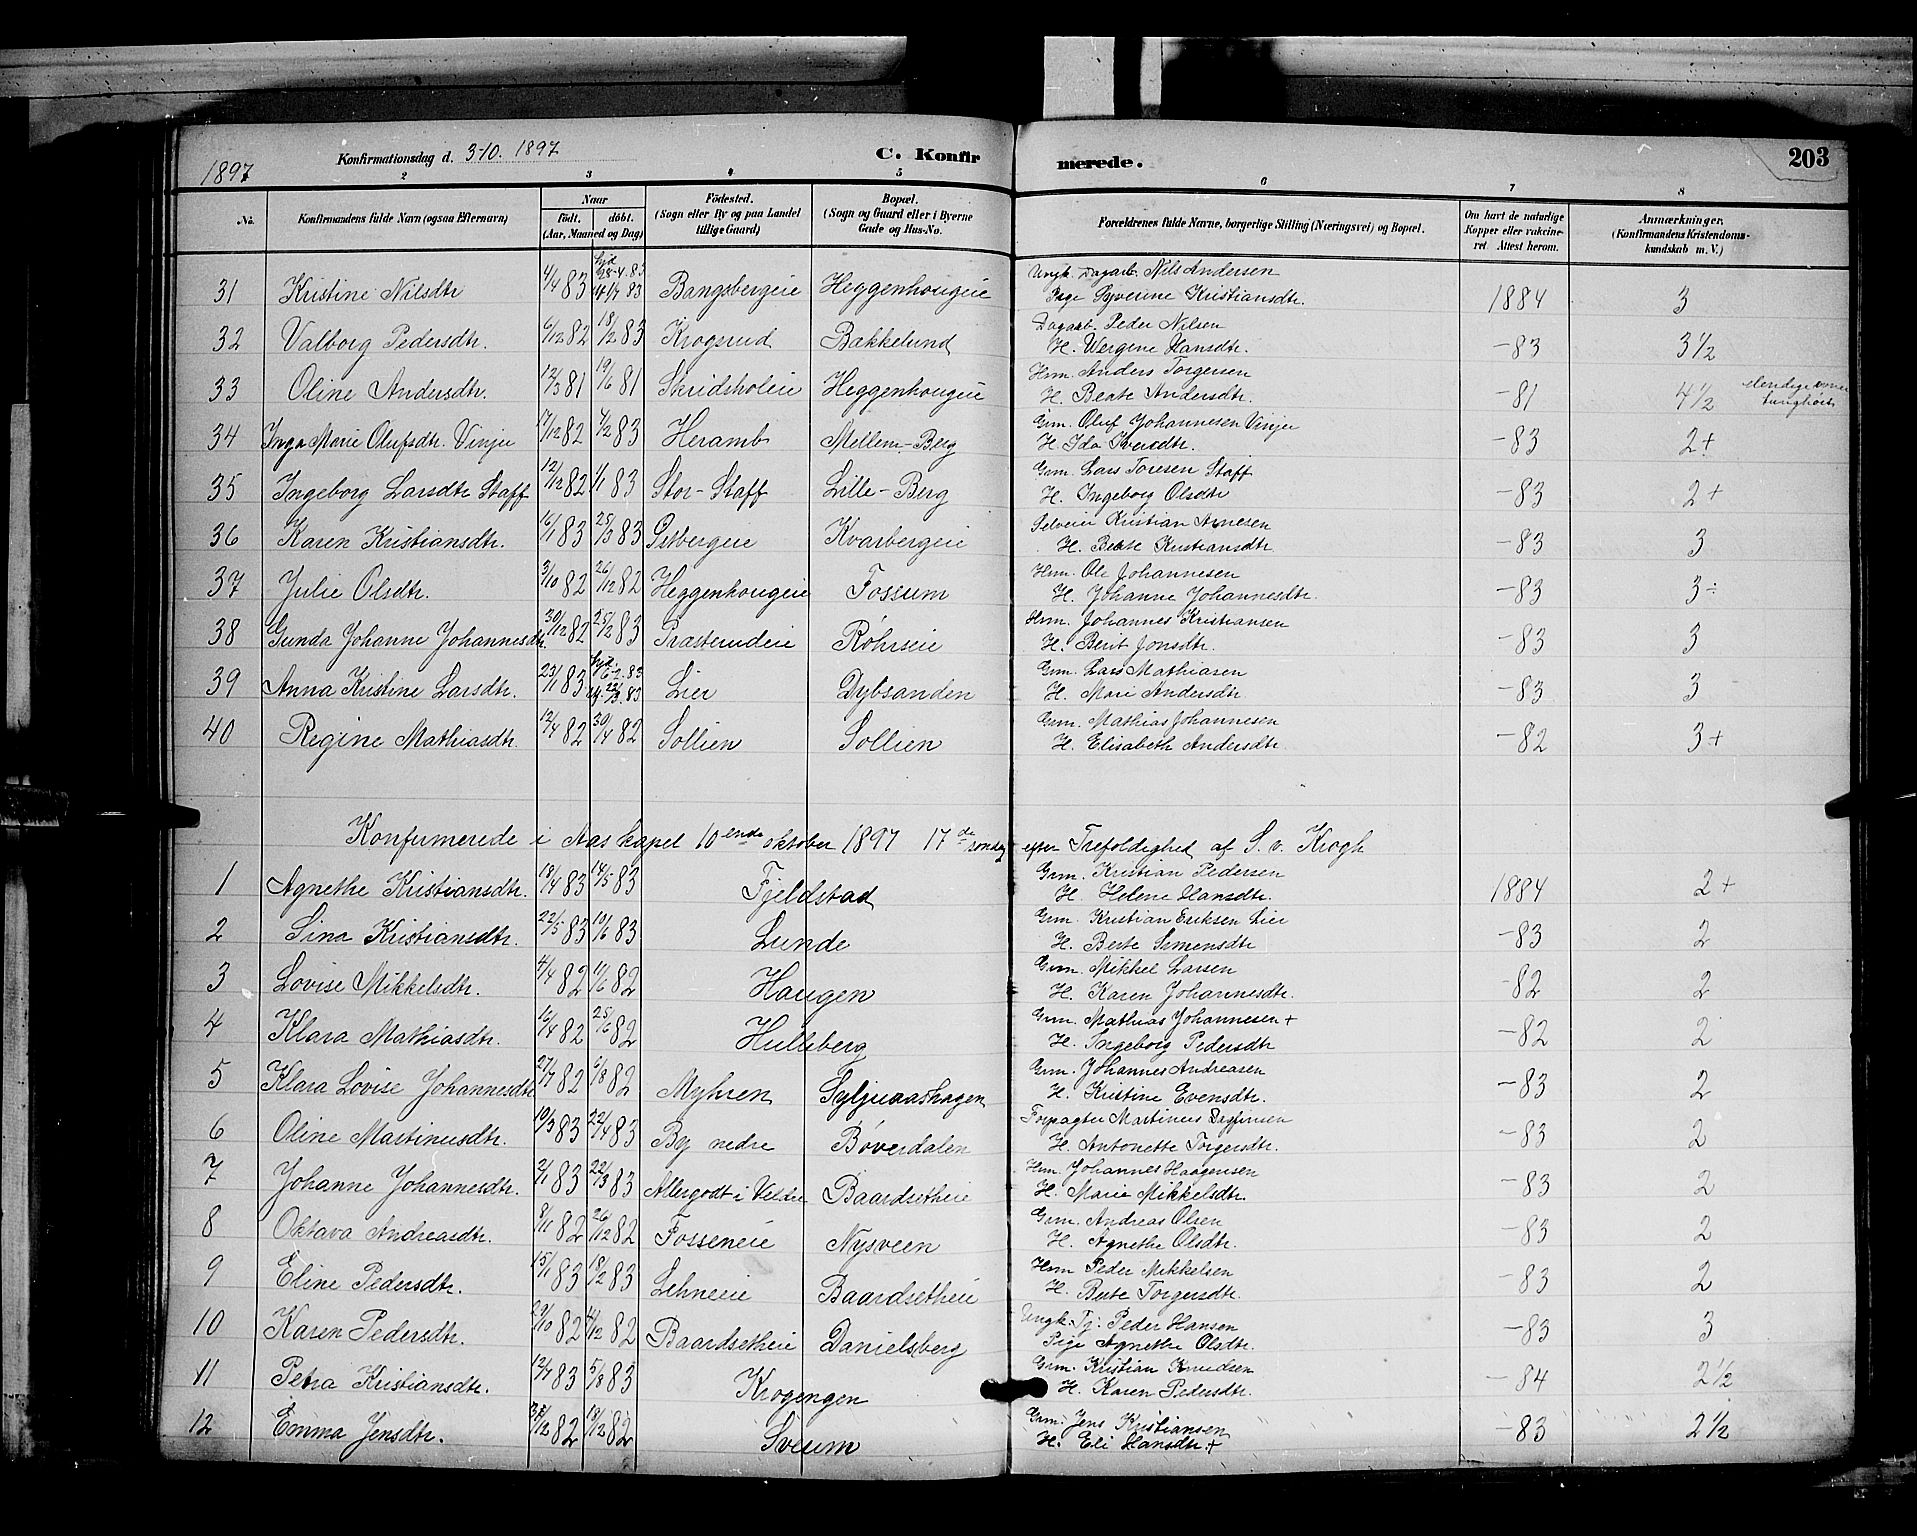 1897 Konfirmationsdag d. 3-10. 1897 C. Konfirmerede. 203
2 3 4 5 6 7 8
No. Konfirmandens fulde Navn (ogsaa Efternavn) Naar født. døbt. (Aar, Maaned og Dag) Fødested. (Sogn eller By og paa Landet tillige Gaard) Bopæl. (Sogn og Gaard eller i Byerne Gade og Hus-No. Forældrenes fulde Navne, borgerlige Stilling (Næringsvei) og Bopæl. Om havt de naturlige Kopper eller vaccineret Attest herom. Anmærkninger. (Konfirmandens Kristendomskundskab m. V.)
Ungk. Dagarb. Nils Andersen
31 Kristine Nilsdtr 4/4 83 Bangsbergeie Heggenhougeie Pige Syverine Kristiansdtr. 1884 3
Dagarb. Peder Nilsen
32 Valborg Pedersdtr. 6/12 82 18/2 83 Krogsrud Bakkelund H. Wergine Hansdtr. -83 3½
Hrm. Anders Torgersen
33 Oline Andersdtr. 12/3 81 19/6 81 Skridsholeie Heggenhougeie H. Beate Andersdtr. -81 4½ tunghørt
Grm. Oluf Johannesen Vinje
34 Inga Marie Olufsdtr. Vinje 17/12 82 4/2 83 Heramb Mellem-Berg H. Ida Iversdtr. -83 2+
Grm. Lars Toresen Staff
35 Ingeborg Larsdtr Staff 12/12 82 1/1 83 Stor-Staff Lille-Berg H. Ingeborg Olsdtr -83 2+
Selveier Kristian Arnesen
36 Karen Kristiansdtr. 16/1 83 25/3 83 Østbergeie Kvarbergeie H. Beate Kristiansdtr -83 3
Hrm. Ole Johannesen
37 Julie Olsdtr. 3/10 82 26/12 82 Heggenhougeie Fossum H. Johanne Johannesdtr. -83 3÷
Hrm. Johannes Kristiansen
38 Gunda Johanne Johannesdtr. 30/12 82 25/2 83 Præsterudeie Røhrseie H. Berit Jonsdtr. -83 3
Grm. Lars Mathiasen
39 Anna Kristine Larsdtr. 23/1 83 Lier Dybsanden H. Mari Andersdtr -83 3
Grm. Mathias Johannesen
40 Regine Mathiasdtr. 12/4 82 30/4 82 Sollien Sollien H. Elisabeth Andersdtr. -82 3+
Konfirmerede i Aas kapel 10ende oktober 1897 17de søndag efter Trefoldighed af S. v. Krogh
Grm. Kristian Pedersen
1 Agnethe Kristiansdtr. 18/4 83 14/5 83 Fjeldstad H. Helene Hansdtr. 1884 2+
Grm. Kristian Eriksen Lier
2 Sina Kristiansdtr. 22/5 83 10/6 83 Lunde H. Berte Simensdtr -83 2
Grm. Mikkel Larsen
3 Lovise Mikkelsdtr. 4/4 82 11/6 82 Haugen H. Karen Johannesdtr. -82 2
Grm. Mathias Johannesen +
4 Klara Mathiasdtr. 16/4 82 25/6 82 Hullsberg H. Ingeborg Pedersdtr -82 2
Grm. Johannes Andreasen
5 Klara Lovise Johannesdtr 27/7 82 6/8 82 Myhren Syljuaashagen H. Kristine Evensdtr. -83 2
Forpagter Martinus Dagfinsen
6 Oline Martinusdtr. 10/3 83 22/4 83 By nedre Bøverdalen H. Antonette Torgersdtr. -83 2
Hrm. Johannes Haagensen
7 Johanne Johannesdtr. 2/1 83 22/3 83 Allergodt i Veldre Baardsetheie H. Marie Mikkelsdtr. -83 2
Grm. Andreas Olsen
8 Oktava Andreasdtr. 8/11 82 26/12 82 Fosseneie Nysveen H. Agnethe Olsdtr. -83 2
Hrm Peder Mikkelsen
9 Eline Pedersdtr. 15/1 83 18/2 83 Lehneeie Baardsetheie H. Berte Torgersdtr. -83 2
Ungk. Tj. Peder Hansen
10 Karen Pedersdtr. 29/10 82 4/12 82 Baardsetheie Danielsberg Pige Agnethe Olsdtr. -83 3
Grm. Kristian Knudsen
11 Petra Kristiansdtr. 12/7 83 5/8 83 Krogengen H. Karen Pedersdtr. -84 2½
Grm. Jens Kristiansen
12 Emma Jensdtr. 82 82 Sveum H. Eli Hansdtr + -83 2½